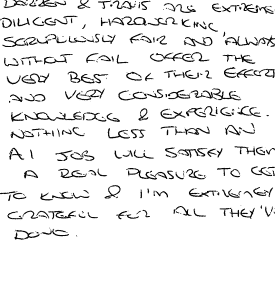 DARREN & TRAVIS ARE EXTREME
DILIGENT, HARDWORKING,
SCRUPULOUSLY FAIR AND ALWAYS
WITHOUT FAIL OFFER THE
VERY BEST OF THEIR EFFORT
AND VERY CONSIDERABLE
KNOWLEDGE & EXPERIENCE.
NOTHING LESS THAN AN
A1 JOB WILL SATISFY THEM
A REAL PLEASURE TO GET
TO KNOW & I'M EXTREMELY
GRATEFUL FOR ALL THEY'V
DONE.